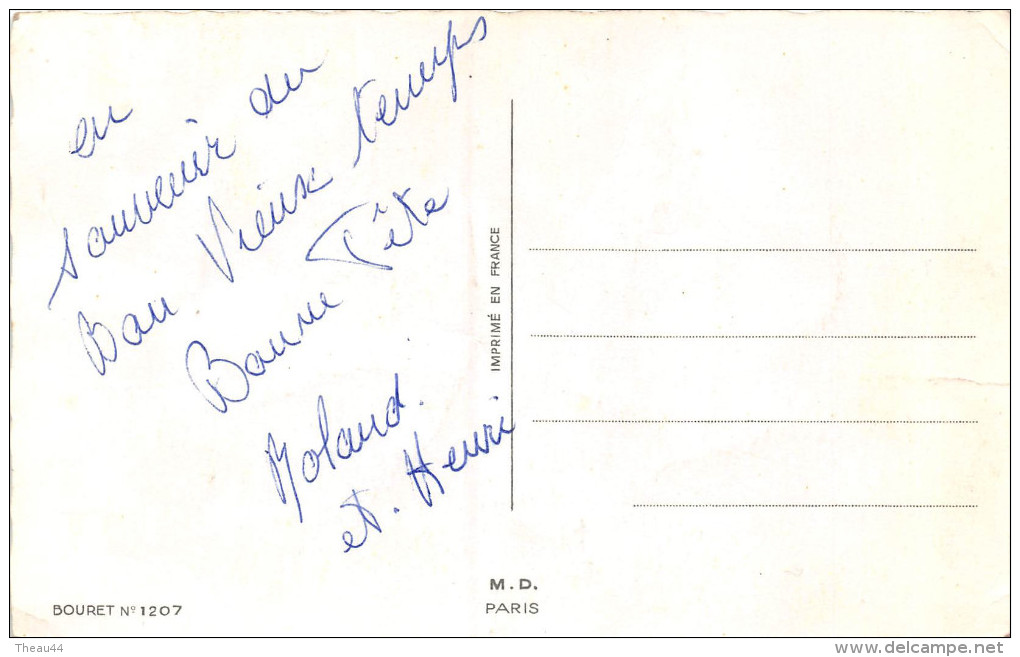 en
souvenir du
Bon Vieux temps
Bonne Fête
Roland.
et. Henri
IMPRIMÉ EN FRANCE
M.D.
PARIS
BOURET Nº 1207
Theau44
www.delcampe.net